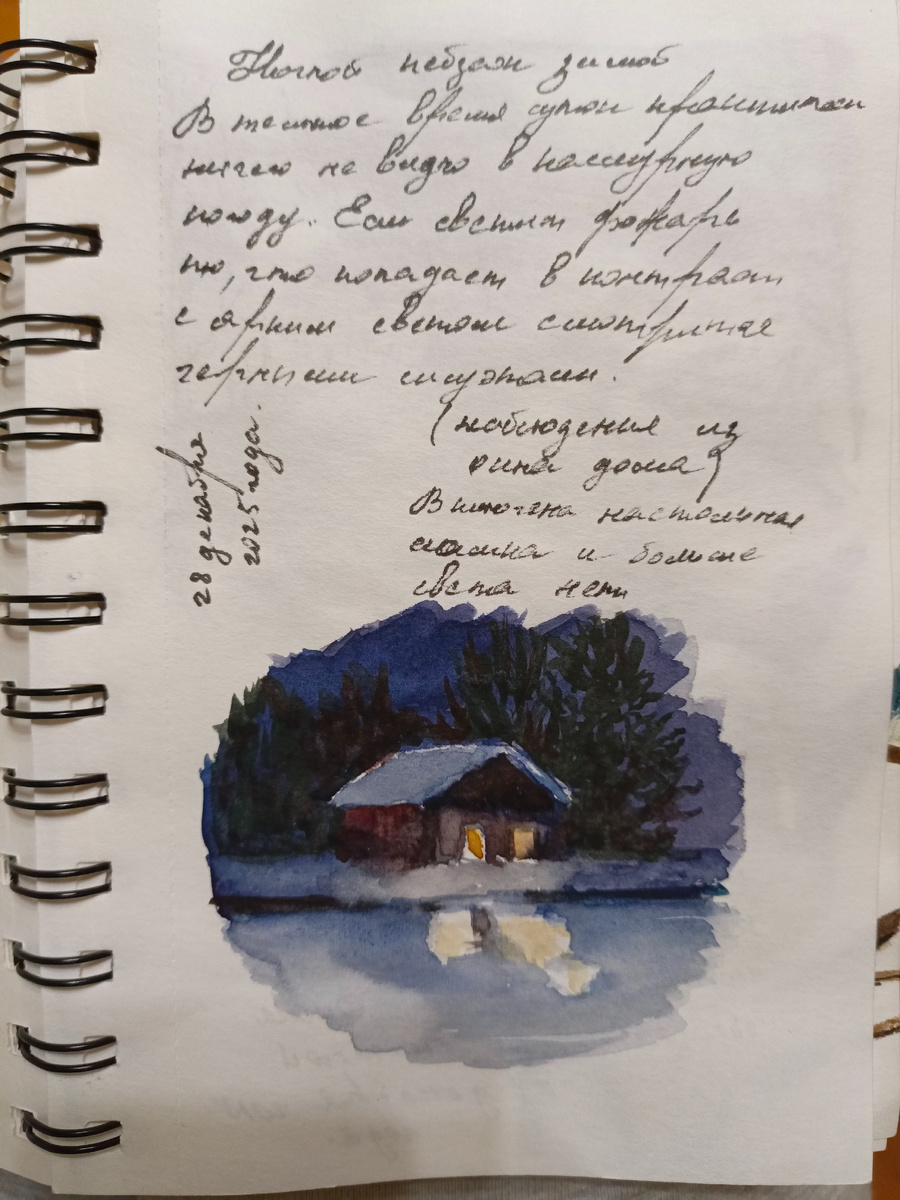 Ночной пейзаж зимой
В темное время суток практически
ничего не видно в пасмурную
погоду. Если светит фонарь
то, что попадает в контраст
с ярким светом смотрится
черными силуэтами.
(наблюдения из
окна дома)
Включена настольная
лампа и больше
света нет
28 декабря
2025 года.